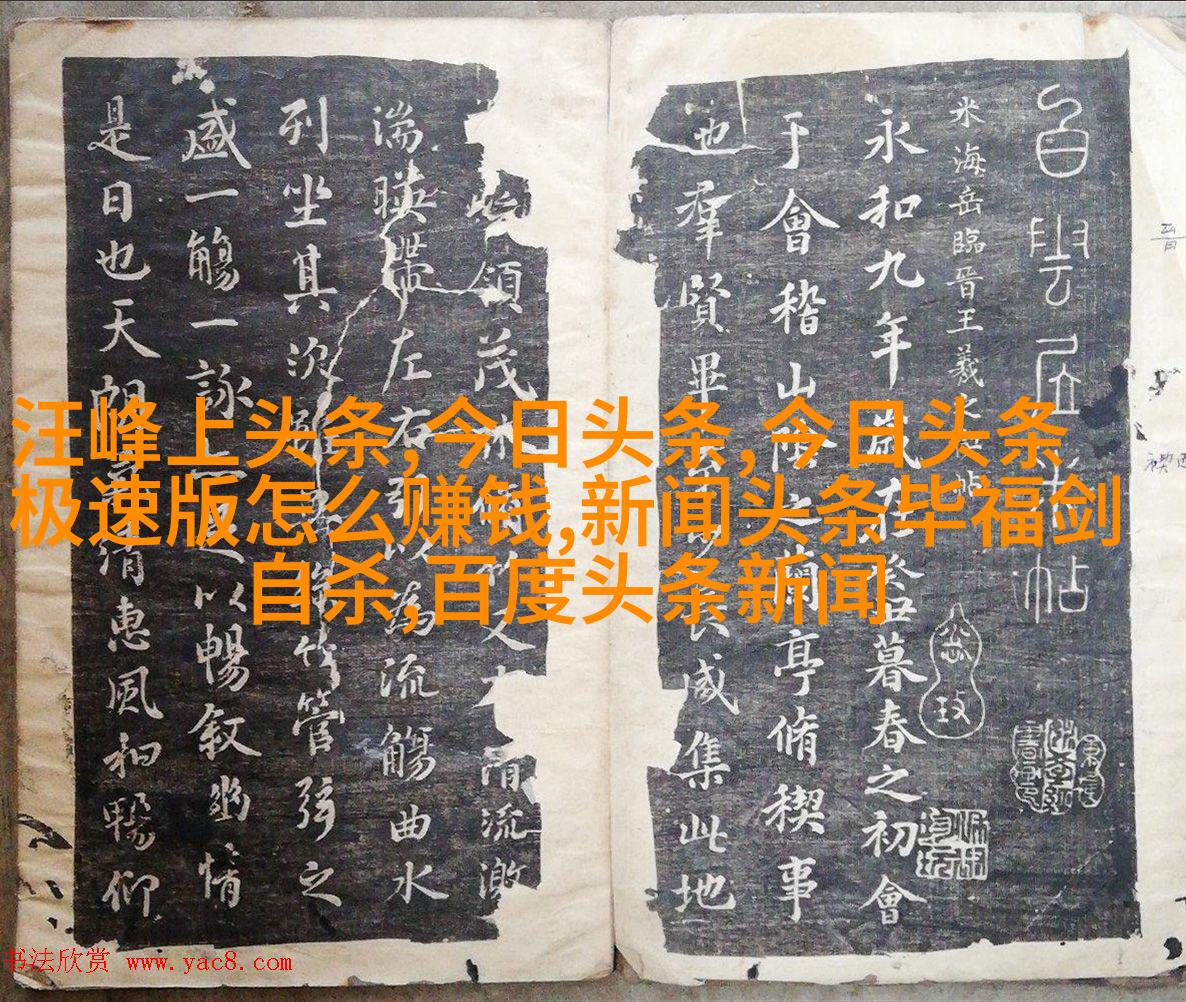 汪峰上头条,今日头条,今日头条
极速版怎么赚钱,新闻头条毕福剑
自杀,百度头条新闻
白雲居米帖
米海岳臨晉王羲之禊帖
永和九年歲在癸丑暮春之初會
于會稽山陰之蘭亭脩禊事
也羣賢畢至少長咸集此地
領茂林脩竹又有清流激
湍暎帶左右引以為流觴曲水
列坐其次雖無絲竹管弦之
盛一觴一詠亦足以暢叙幽情
是日也天朗氣清惠風和暢仰
书法欣赏 www.yac8.com